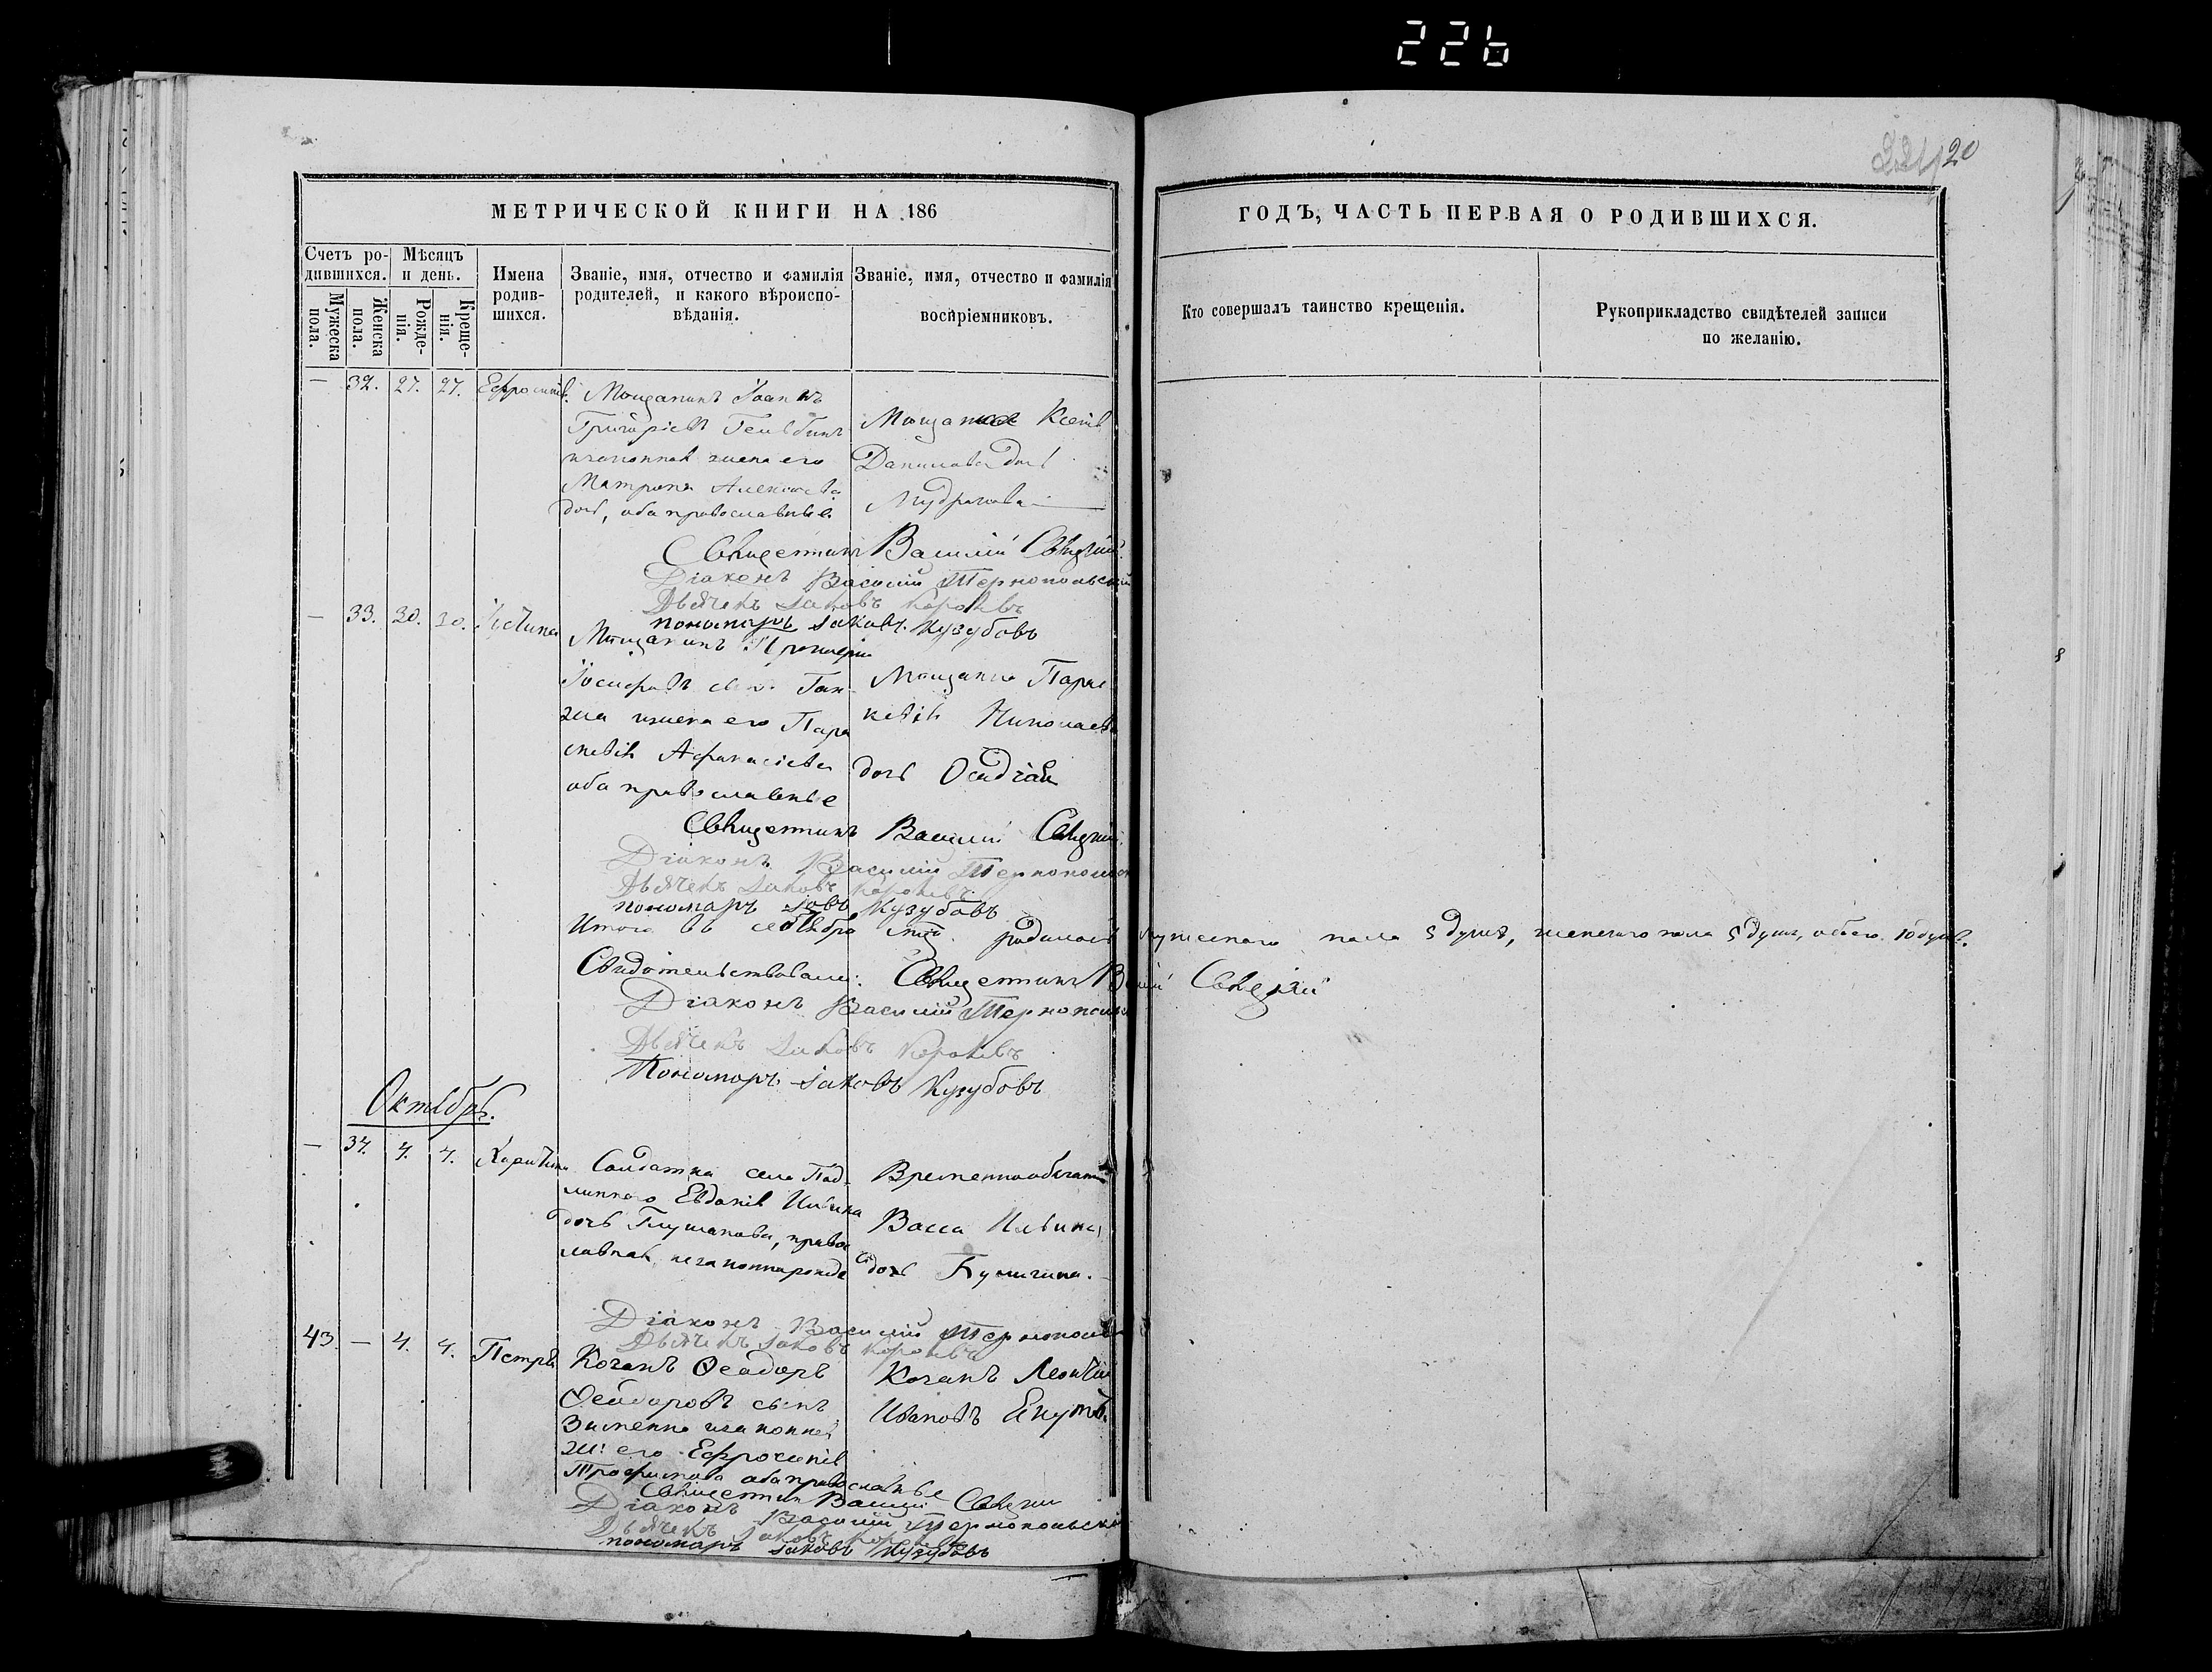 226
20
МЕТРИЧЕСКОЙ КНИГИ НА 186
ГОДЪ, ЧАСТЬ ПЕРВАЯ О РОДИВШИХСЯ.
Счетъ родившихся.
Мужеска пола.
Женска пола.
Мѣсяцъ и день.
Рожденія.
Крещенія.
Имена родившихся.
Званіе, имя, отчество и фамилія родителей, и какого вѣроисповѣданія.
Званіе, имя, отчество и фамилія воспріемниковъ.
Кто совершалъ таинство крещенія.
Рукоприкладство свидѣтелей записи по желанію.
— 32. 27. 27.
Мѣщанинъ Іоаннъ
Григоріевъ
изаконная жена его
Матрона Алексѣева
дочь, оба православные.
Мѣщанка Ксенія
Данилова дочь
Священникъ Василій
Діаконъ Василій Тернопольскій
Дьячекъ Іаковъ
пономарь Іаковъ Кузубовъ
— 33. 30. 30. Іустина
Мѣщанинъ
Іосифовъ сынъ Ган-
жа ижена его Пара
скевія Афанасіева
оба православные
Мѣщанка Парас
кевія Николаева
дочь
Священникъ Василій
Діаконъ Василій Тернопольск
Дьячекъ Іаковъ
пономарь Іаковъ Кузубовъ
Итого въ сентябрѣ родилось мужескаго пола 5 душъ, женскаго пола 5 душъ, обоего 10 душъ.
Свидѣтельствовали: Священникъ
Діаконъ Василій Тернопольск
Дьячекъ Іаковъ
Пономарь Іаковъ Кузубовъ
Октябрь.
— 34. 4. 4. Харитина
Солдатка села Под-
липнаго Евдокія Ильина
дочь Глушакова, право
славная, незаконнорожде
Временнообязан
Васса Ильина
дочь
Діаконъ Василій Тернопольск
Дьячекъ Іаковъ
43. — 4. 4. Петръ
Козакъ Ѳеодоръ
Ѳеодоровъ сынъ
Зименко изаконная
же: его Ефросинія
Трофимова оба православные
Козакъ Леонтій
Ивановъ
Священникъ Василій
Діаконъ Василій Тернопольскій
Дьячекъ Іаковъ
пономарь Іаковъ Кузубовъ